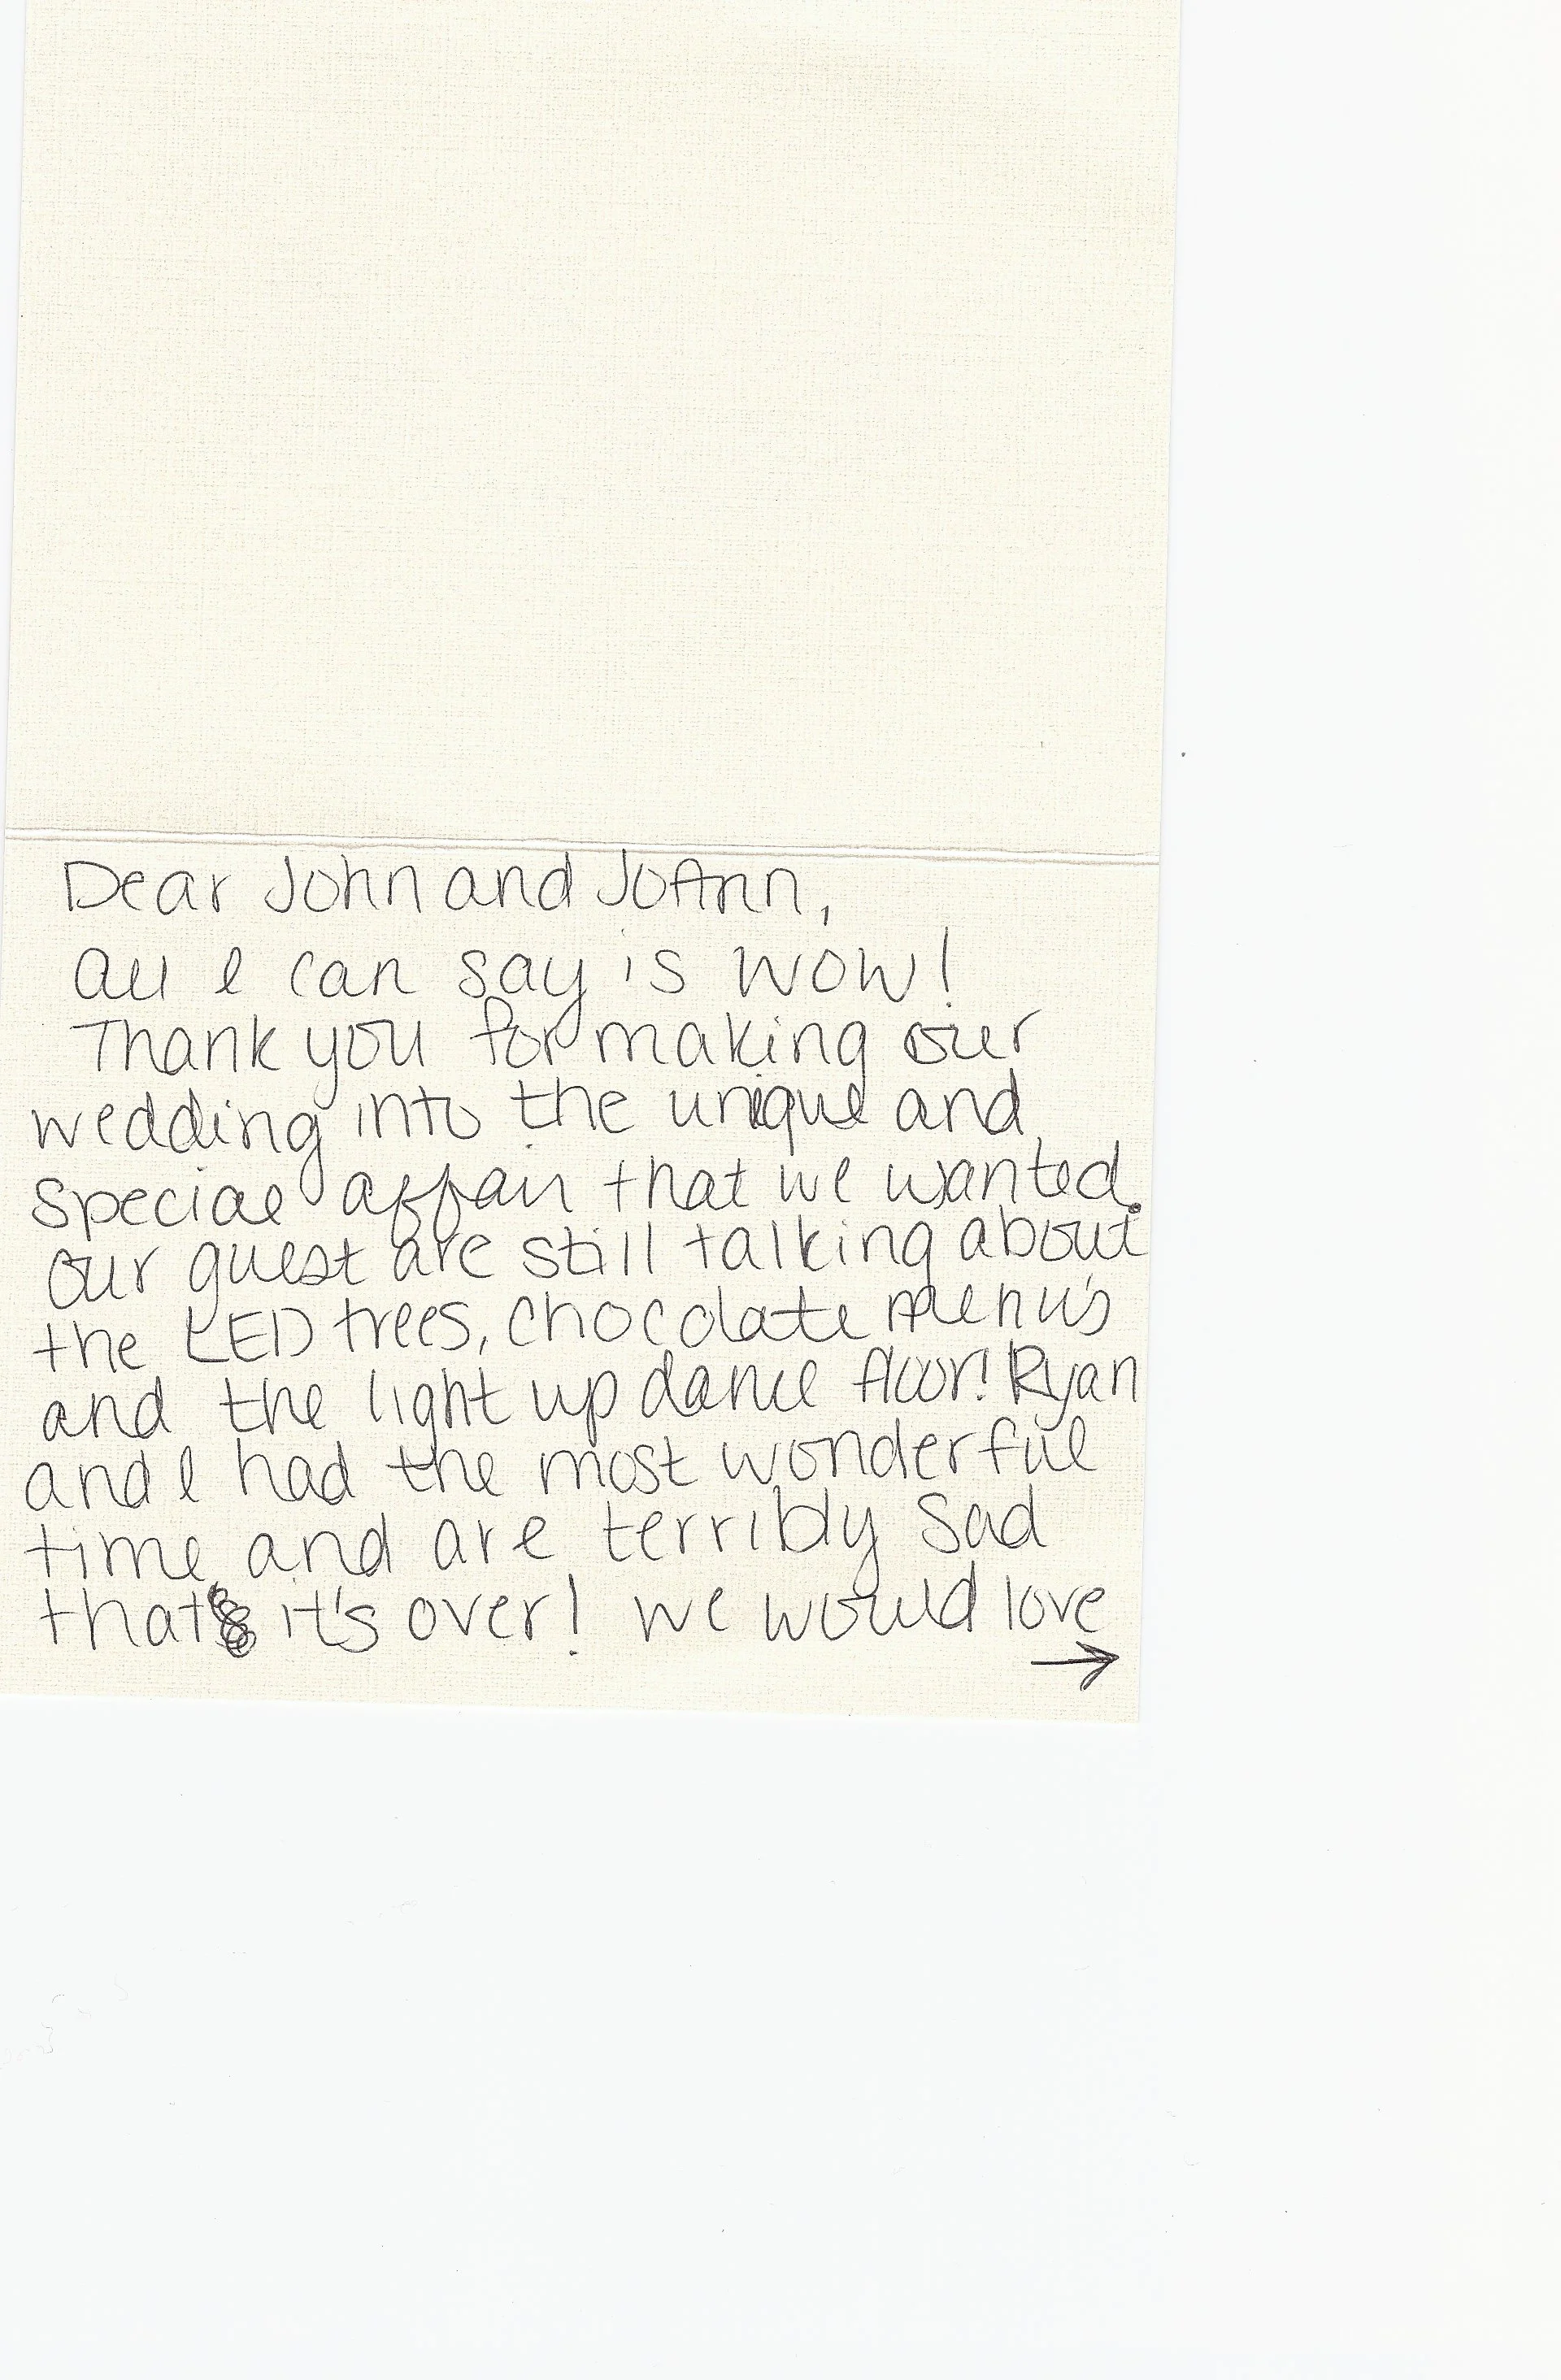 Dear John and JoAnn,
All I can say is WOW!
Thank you for making our
wedding into the unique and
special affair that we wanted.
Our guest are still talking about
the LED trees, chocolate menu's
and the light up dance floor! Ryan
and I had the most wonderful
time and are terribly sad
that it's over! We would love
→